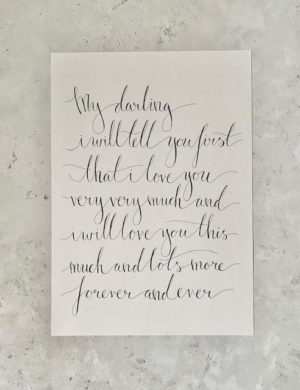 My darling
i will tell you first
that i love you
very very much and
i will love you this
much and lots more
forever and ever